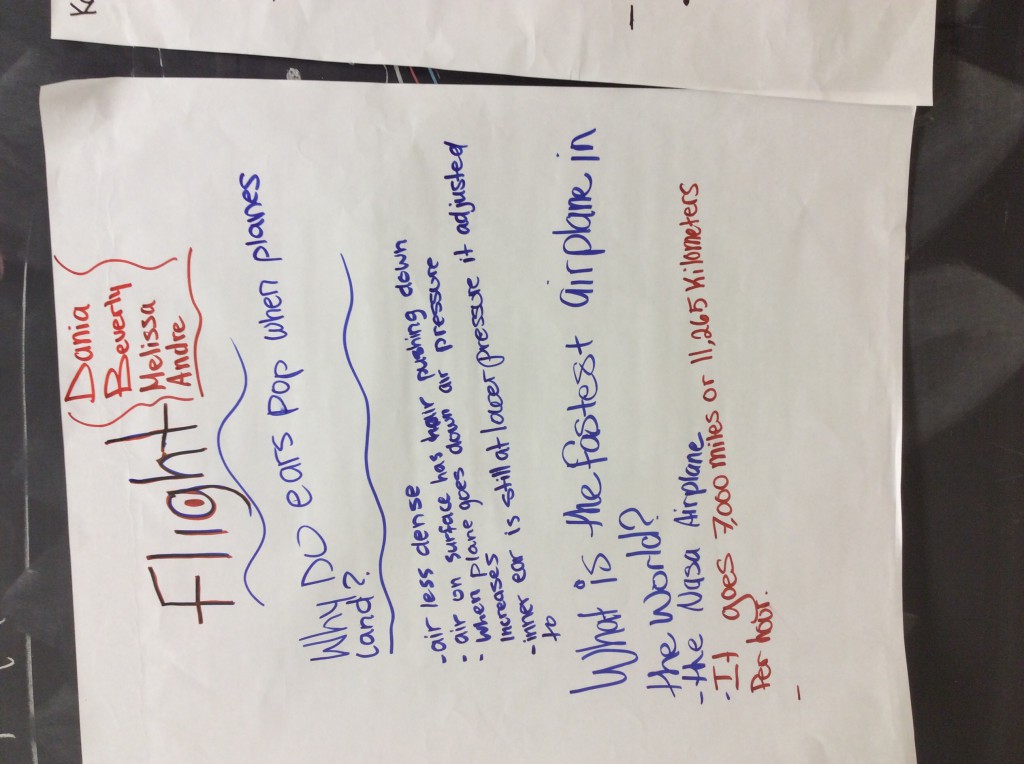 Flight
Dania
Beverly
Melissa
Andre
Why Do ears pop when planes
land?
- air less dense
- air on surface has hair pushing down
- when plane goes down air pressure
increases
- inner ear is still at lower pressure it adjusted
to
What is the fastest airplane in
the World?
- the Nasa Airplane
- It goes 7,000 miles or 11,265 Kilometers
Per hour.